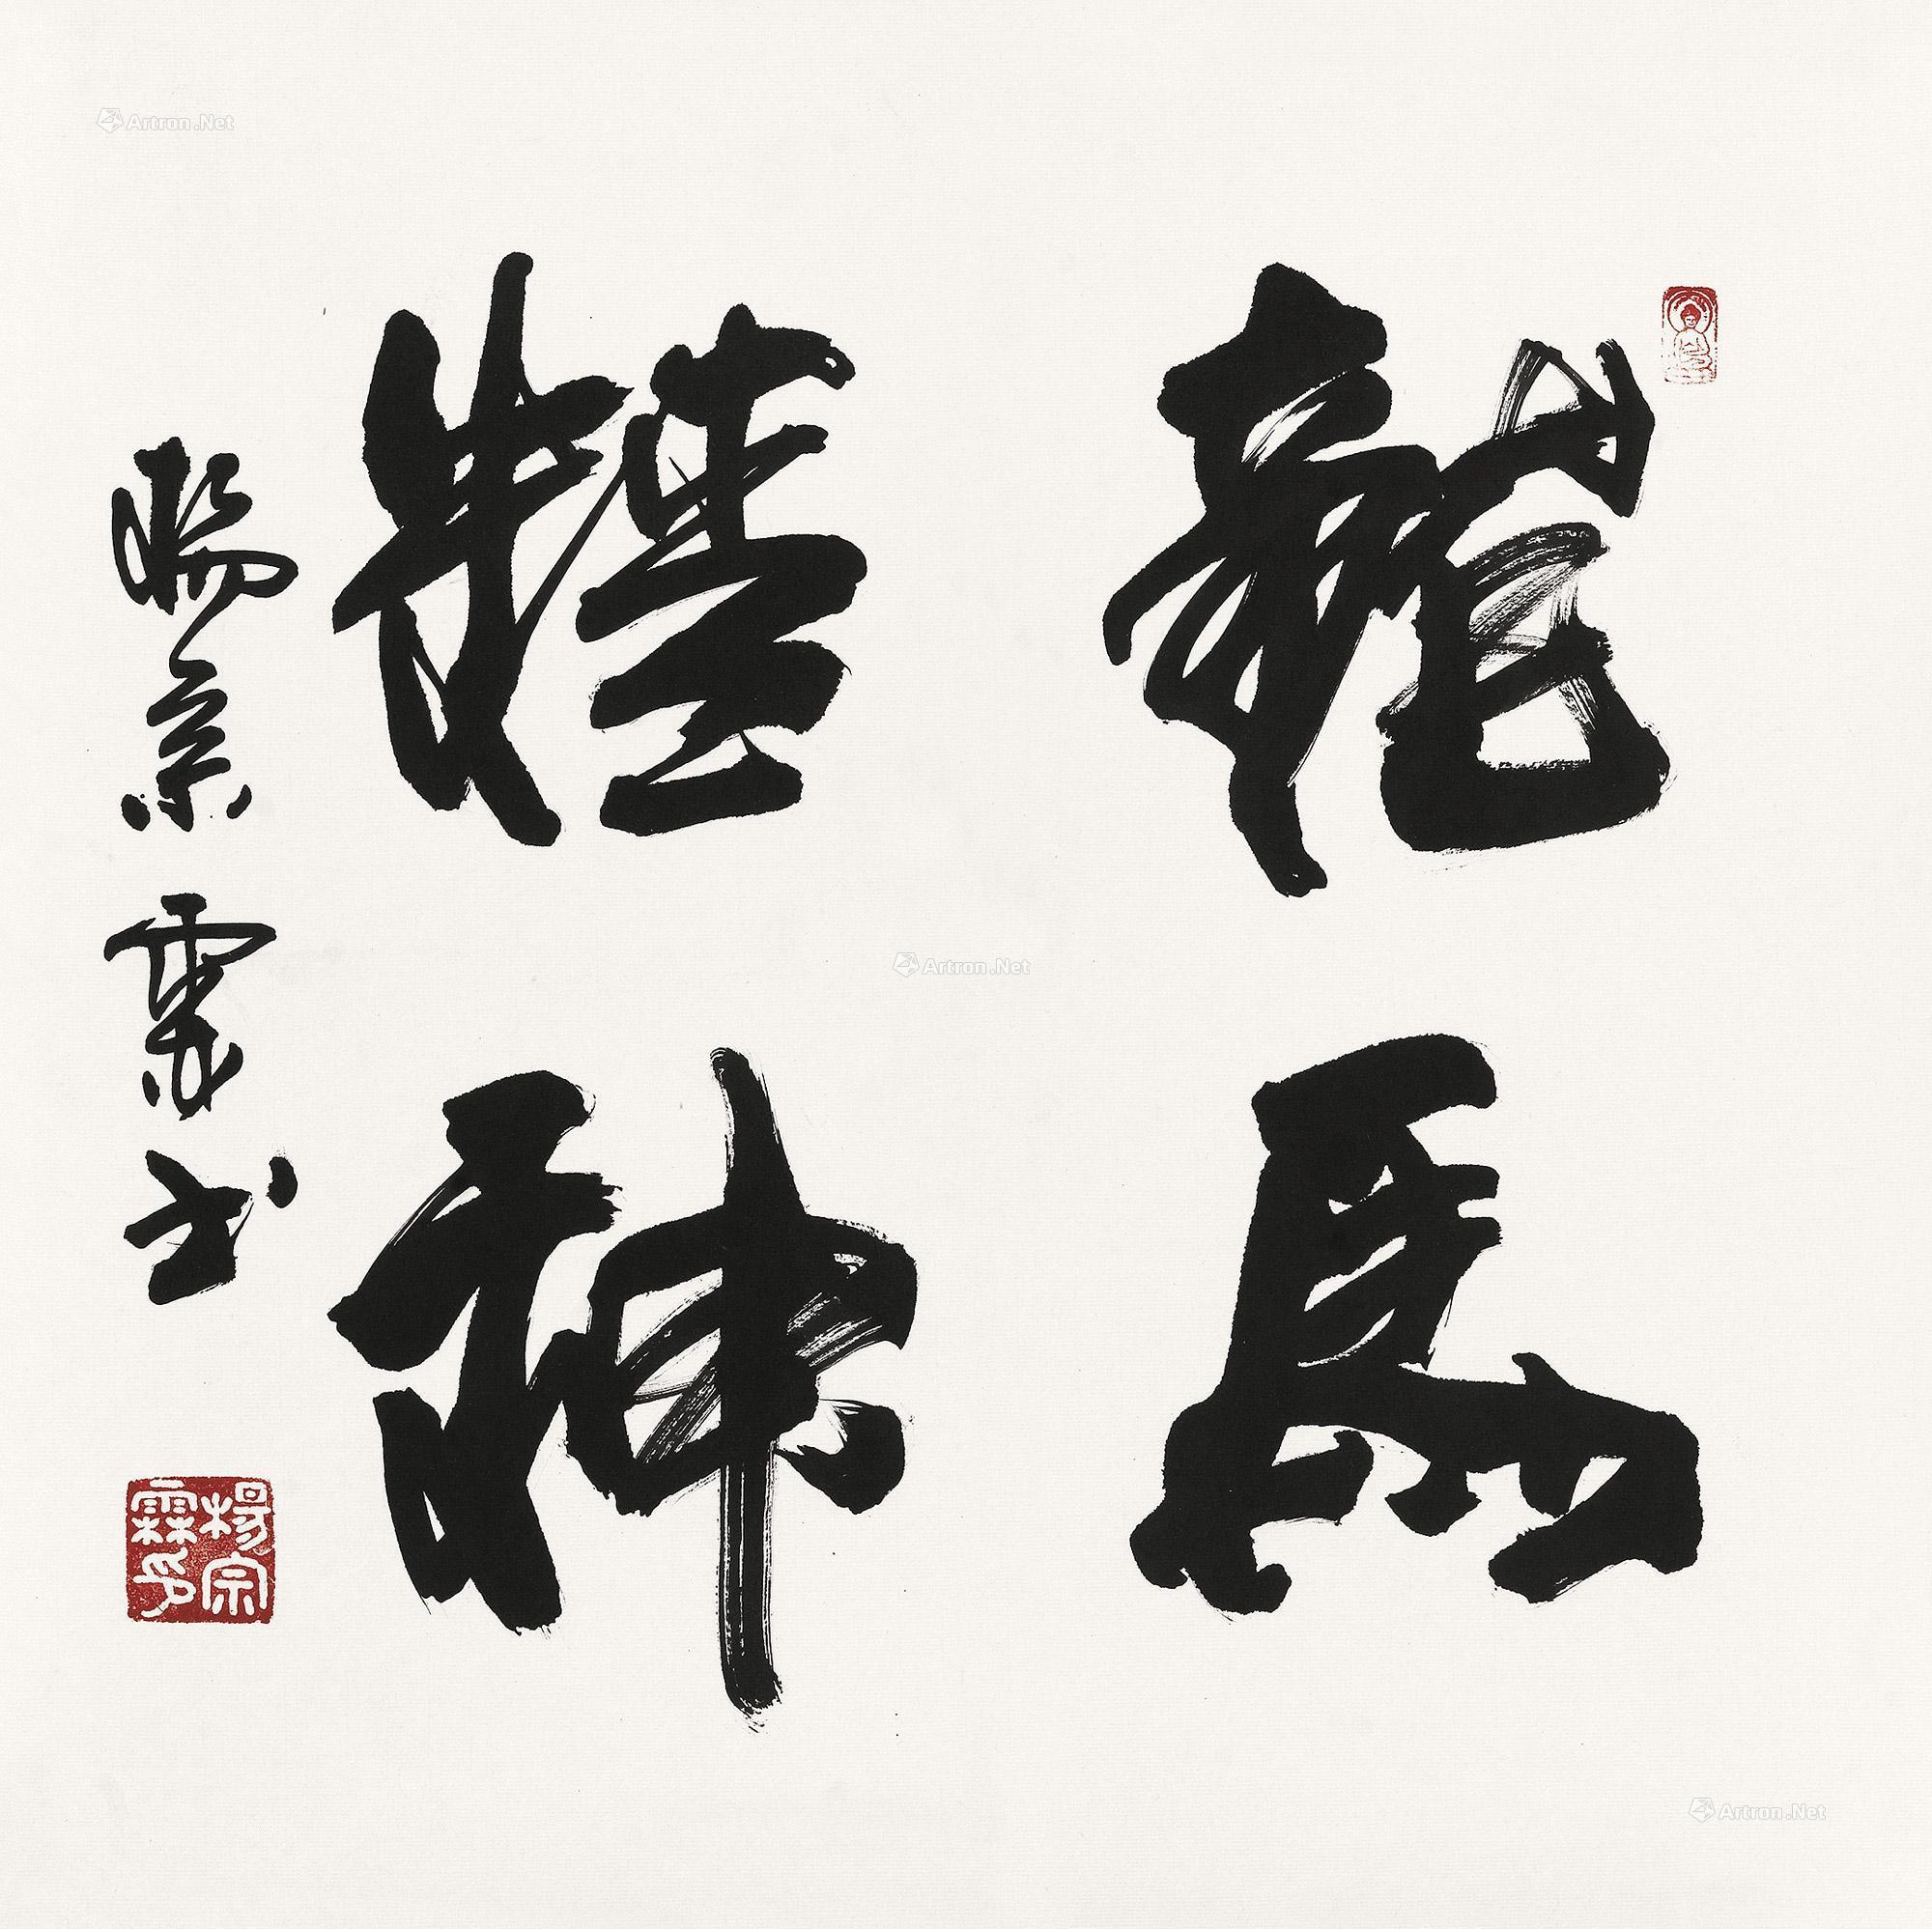 龍馬
精神
楊宗霖书
楊宗
霖印
Artron.Net
Artron.Net
Artron.Net